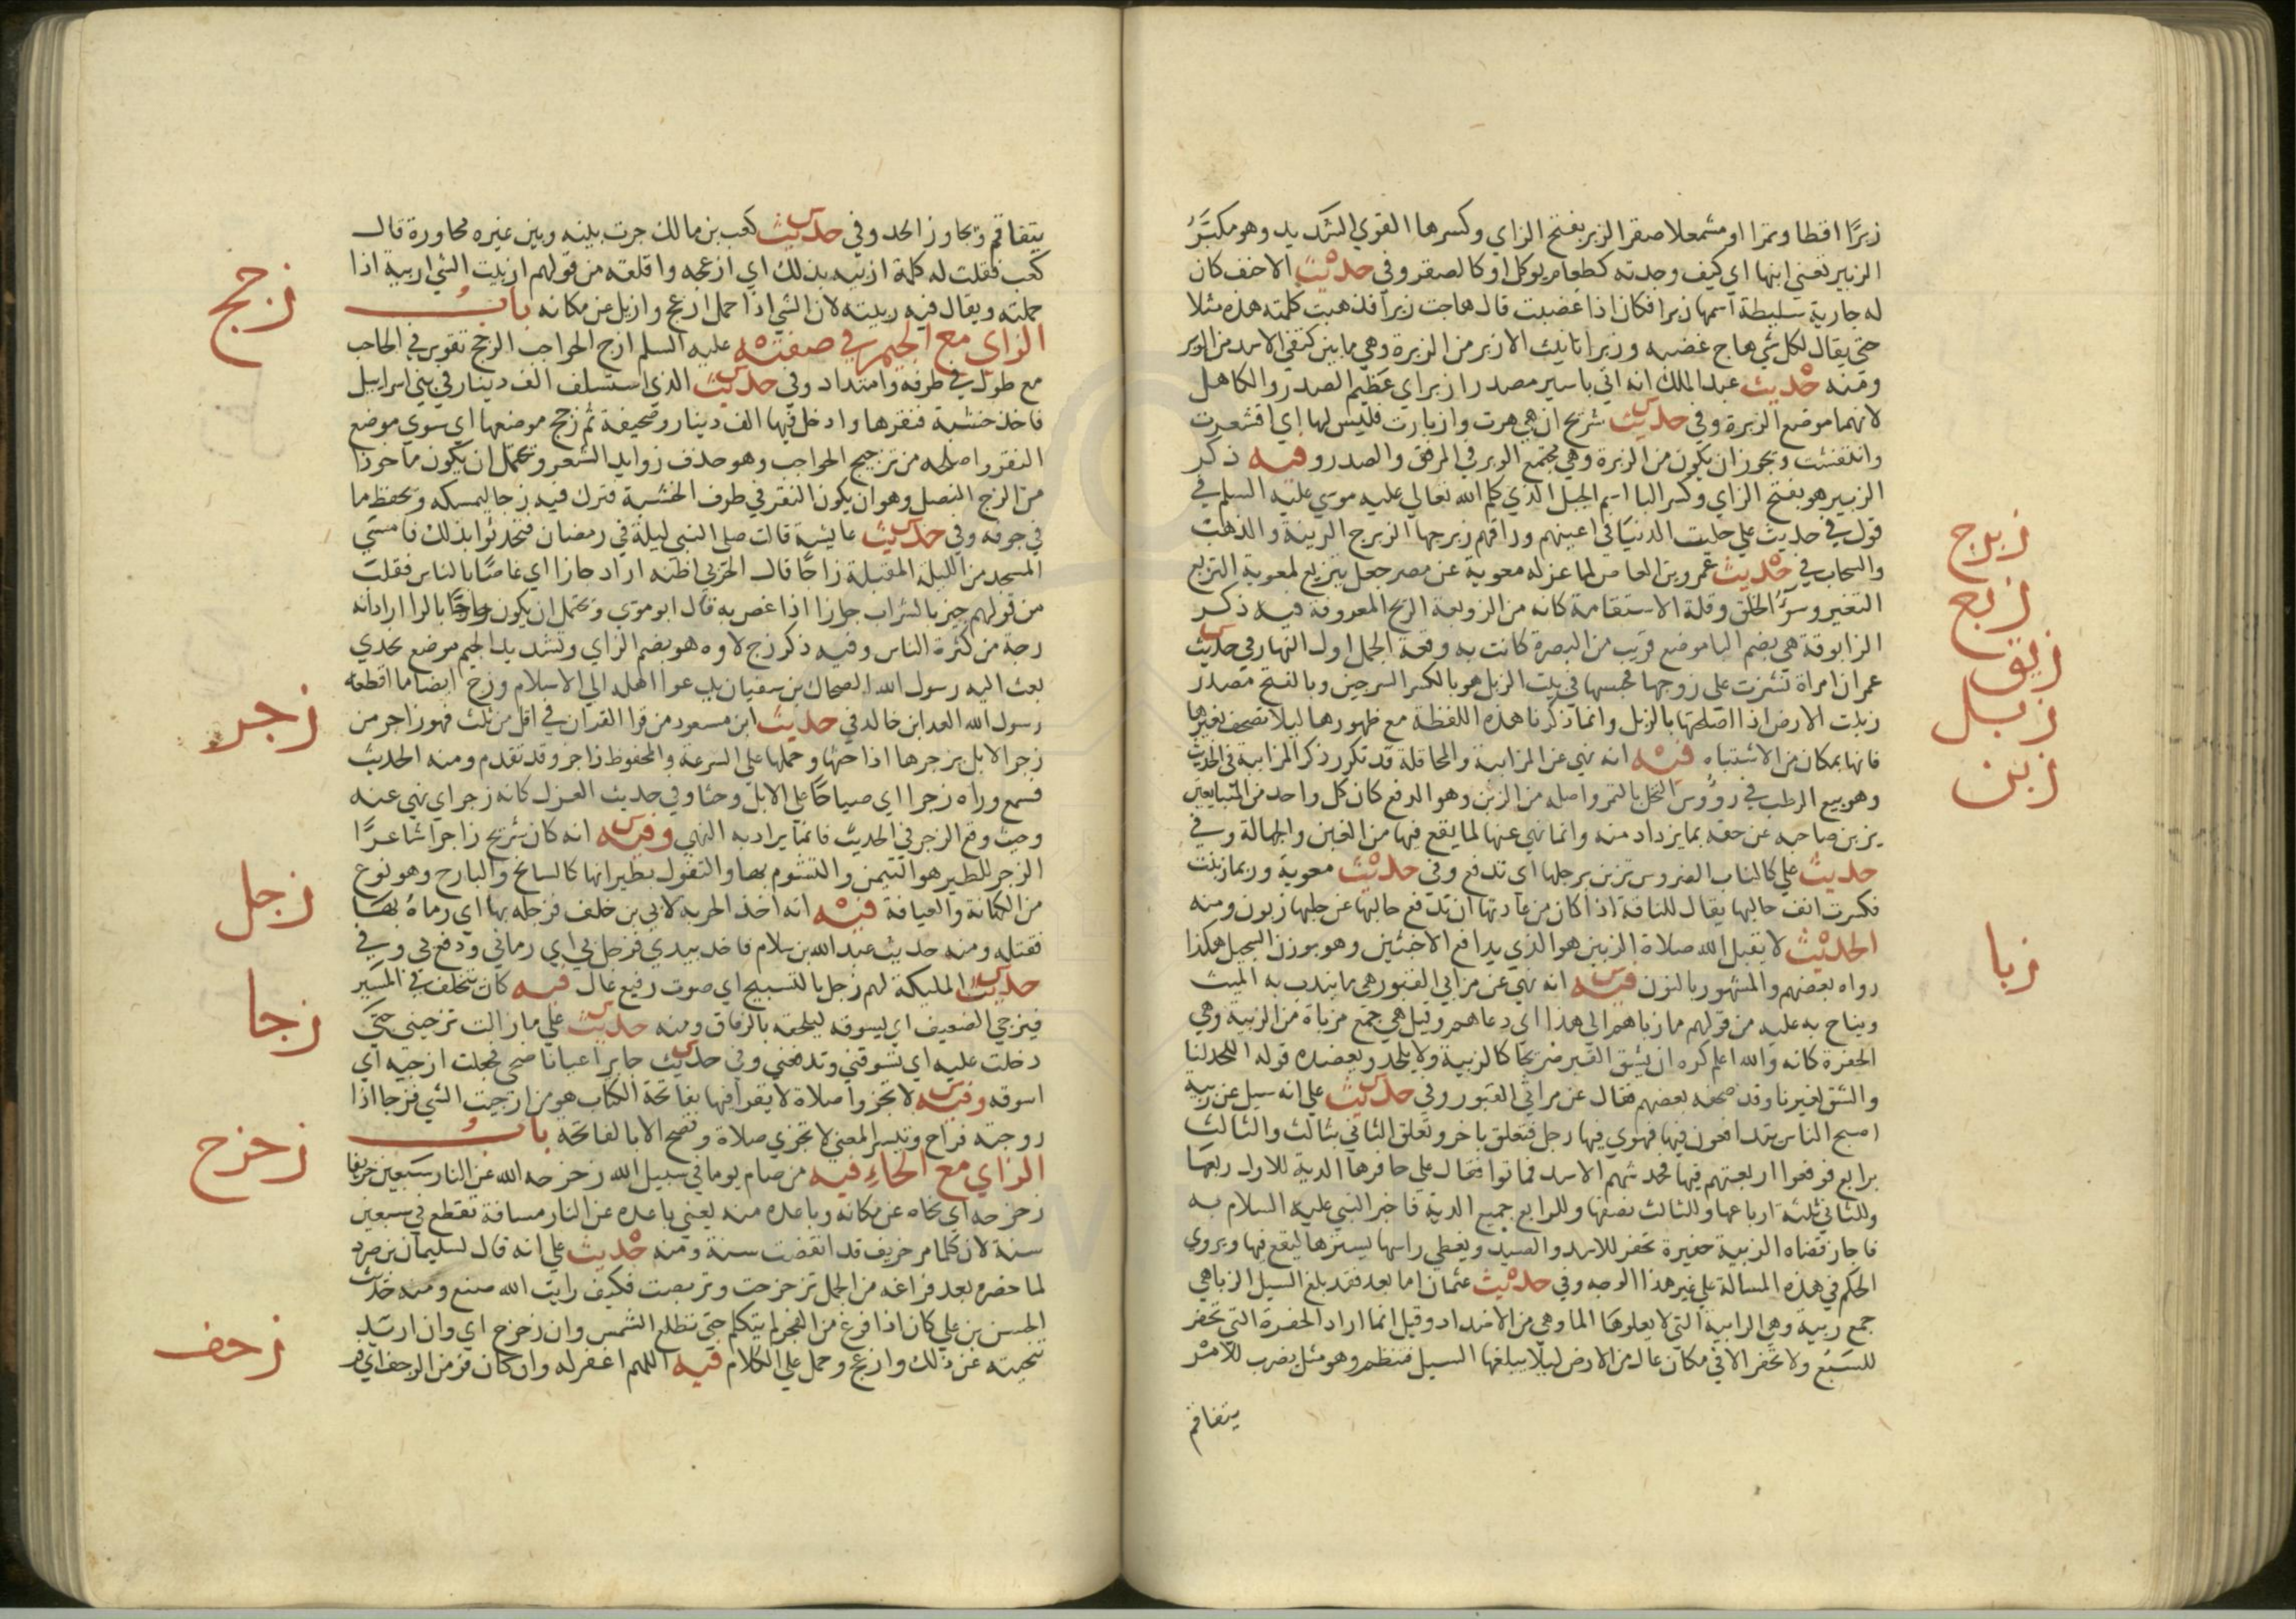 زبرا اقطا وتمرا او مشمعلا صقرا الزبر بفتح الزاي وكسرها القوي الشديد وهو مكبر
الزبير تعني ابنها اي كيف وجدته كطعام يوكل او كالصقر وفي حديث الاحنف كان
له جارية سليطة اسمها زبرا فكان اذا غضبت قال هاجت زبرا فذهبت كلمته هذه مثلا
حتي يقال لكل شي هاج غضبه وزبرا تانيث الازبر من الزبرة وهي ما بين كتفي الاسد من الوبر
ومنه حديث عبد الملك انه اتي باسير مصدر ازبر اي عظيم الصدر والكاهل
لانهما موضع الزبرة وفي حديث شريح ان هي هرت وازبارت فليس لها اي اقشعرت
وانتفشت ويجوز ان يكون من الزبرة وهي مجتمع الوبر في المرفق والصدر وفيه ذكر
الزبير هو بفتح الزاي وكسر البا اسم الجبل الذي كلم الله تعالي عليه موسي عليه السلم في
قول في حديث علي حليت الدنيا في اعينهم وراقهم زبرجها الزبرج الزينة والذهب
والسحاب في حديث عمرو بن العاص لما عزله معوية عن مصر جعل يتزبع لمعوية التزبع
التغير وسوء الخلق وقلة الاستقامة كانه من الزوبعة الريح المعروفة فيه ذكر
الزابوقة هي بضم البا موضع قريب من البصرة كانت به وقعة الجمل اول النهار في حديث
عمر ان امراة نشزت علي زوجها فحبسها في بيت الزبل هو بالكسر السرجين وبالفتح مصدر
زبلت الارض اذا اصلحتها بالزبل وانما ذكرنا هذه اللفظة مع ظهورها ليلا تصحف بغيرها
فانها بمكان من الاشتباه فيه انه نهي عن المزابنة والمحاقلة قد تكرر ذكر المزابنة في الحديث
وهو بيع الرطب في رؤوس النخل بالتمر واصله من الزبن وهو الدفع كان كل واحد من المتبايعين
يزبن صاحبه عن حقه بما يزداد منه وانما نهي عنها لما يقع فيها من الغبن والجهالة وفي
حديث علي كالناب الضروس تزبن برجلها اي تدفع وفي حديث معوية وربما زبنت
فكسرت انف حالبها يقال للناقة اذا كان من عادتها ان تدفع حالبها عن حلبها زبون ومنه
الحديث لا يقبل الله صلاة الزبين هو الذي يدافع الاخبثين وهو بوزن السجيل هكذا
رواه بعضهم والمشهور بالنون فيه انه نهي عن مزابي القبور هي ما يندب به الميت
ويناح به عليه من قولهم ما زباهم الي هذا اي دعاهم وقيل هي جمع مزباة من الزبية وهي
الحفرة كانه والله اعلم كره ان يشق القبر ضريحا كالزبية ولا يلحد ويعضده قوله اللحد لنا
والشق لغيرنا وقد صحفه بعضهم فقال عن مراثي القبور وفي حديث علي انه سيل عن زبية
اصبح الناس يتدافعون فيها فهوي فيها رجل فتعلق باخر وتعلق الثاني بثالث والثالث
برابع فوقعوا اربعتهم فيها فخدشهم الاسد فماتوا فقال علي حافرها الدية للاول ربعها
وللثاني ثلثة ارباعها وللثالث نصفها وللرابع جميع الدية فاخبر النبي عليه السلام به
فاجاز قضاه الزبية حفيرة تحفر للاسد والصيد ويغطي راسها بسترها ليقع فيها ويروي
الحكم في هذه المسالة علي غير هذا الوجه وفي حديث عثمان اما بعد فقد بلغ السيل الزبا هي
جمع زبية وهي الرابية التي لا يعلوها الما وهي من الاضداد وقيل انما اراد الحفرة التي تحفر
للسبع ولا تحفر الا في مكان عال من الارض ليلا يبلغها السيل فتنطم وهو مثل يضرب للامر
يتفاقم
زبرج
زبع
زبق
زبل
زبن
زبا
يتفاقم ويجاوز الحد وفي حديث كعب بن مالك جرت بينه وبين غيره محاورة قال
كعب فقلت له كلمة ازبيه بذلك اي ازعجه واقلقه من قولهم ازبيت الشي ازبيه اذا
حملته ويقال فيه زبيته لان الشي اذا حمل ازعج وازيل عن مكانه باب
الزاي مع الجيم في صفته عليه السلم ازج الحواجب الزجج تقوس في الحاجب
مع طول في طرفه وامتداد وفي حديث الذي استسلف الف دينار في بني اسراييل
فاخذ خشبة فنقرها وادخل فيها الف دينار وصحيفة ثم زجج موضعها اي سوي موضع
النقر واصلحه من تزجيج الحواجب وهو حذف زوايد الشعر ويحتمل ان يكون ماخوذا
من الزج النصل وهو ان يكون النقر في طرف الخشبة فترك فيه زجا ليمسكه ويحفظ ما
في جوفه وفي حديث عايشة قالت صلي النبي ليلة في رمضان فتحدثوا بذلك فامسي
المسجد من الليلة المقبلة زاجا قال الحربي اظنه اراد جازا اي غاصا بالناس فقلت
من قولهم جيز بالشراب جازا اذا غص به قال ابو موسي ويحتمل ان يكون راجا بالرا اراد انه
رجة من كثرة الناس وفيه ذكر زج لاوه هو بضم الزاي وتشديد الجيم موضع نجدي
بعث اليه رسول الله الضحاك بن سفيان يدعوا اهله الي الاسلام وزج ايضا ما اقطعه
رسول الله العدا بن خالد في حديث ابن مسعود من قرا القران في اقل من ثلث فهو زاجر من
زجر الابل يزجرها اذا حثها وحملها علي السرعة والمحفوظ زاجر وقد تقدم ومنه الحديث
فسمع وراه زجرا اي صياحا علي الابل وحثا وفي حديث العزل كانه زجر اي نهي عنه
وحيث وقع الزجر في الحديث فانما يراد به النهي وفيه انه كان شريح زاجرا شاعرا
الزجر للطير هو التيمن والتشوم بها والتفول بطيرانها كالسانح والبارح وهو نوع
من الكهانة والعيافة فيه انه اخذ الحربة لابي بن خلف فزجله بها اي رماه بها
فقتله ومنه حديث عبد الله بن سلام فاخذ بيدي فزجل بي اي رماني ودفع بي وفي
حديث المليكة لهم زجل بالتسبيح اي صوت رفيع عال فيه كان يتخلف في المسير
فيزجي الضعيف اي يسوقه ليلحقه بالرفاق ومنه حديث علي ما زالت تزجيني حتي
دخلت عليه اي تسوقني وتدفعني وفي حديث جابر اعيانا ضحي فجعلت ازجيه اي
اسوقه وفيه لا تجزوا صلاة لا يقرا فيها بفاتحة الكتاب هو من ازجيت الشي فزجا اذا
روجته فراج وتيسر المعني لا تجزي صلاة وتصح الا بالفاتحة باب
الزاي مع الحاء فيه من صام يوما في سبيل الله زحزحه الله عن النار سبعين خريفا
زحزحه اي نحاه عن مكانه وباعده منه يعني باعده عن النار مسافة تقطع في سبعين
سنة لان كلما مر خريف قد انقضت سنة ومنه حديث علي انه قال لسليمان بن صرد
لما حضره بعد فراغه من الجمل تزحزحت وتربصت فكيف رايت الله صنع ومنه حديث
الحسن بن علي كان اذا فرغ من الفجر لم يتكلم حتي تطلع الشمس وان زحزح اي وان اريد
تنحيته عن ذلك وازعج وحمل علي الكلام فيه اللهم اغفر له وان كان فر من الزحف اي فر
زجج
زجر
زجل
زجا
زحزح
زحف